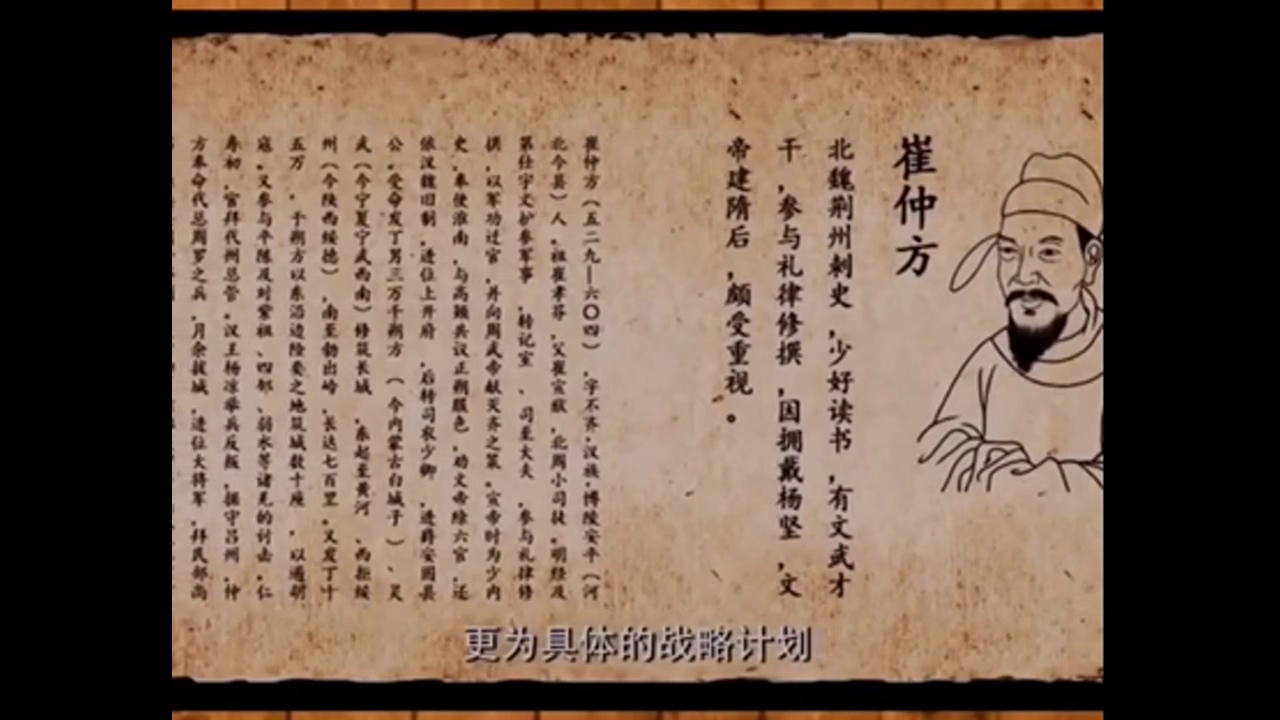 崔仲方
北魏荆州刺史，少好读书，有文武才
干，参与礼律修撰，因拥戴杨坚，文
帝建隋后，颇受重视。
崔仲方（五二九—六〇四），字不齐，汉族，博陵安平（河
北今县）人，祖崔孝芬，父崔宣猷，北周小司徒，明经及
第仕宇文护参军事，转记室、司玉大夫，参与礼律修
撰，以军功过官，并向周武帝献灭齐之策，宣帝时为少内
史，奉使淮南，与高颎共议正朔服色，劝文帝除六官，还
依汉魏旧制，进位上开府，后转司农少卿，进爵安固县
公，受命发丁男三万于朔方（今内蒙古白城子）、灵
武（今宁夏宁武西南）修筑长城，东起至黄河、西拒绥
州（今陕西绥德），南至勃出岭，长达七百里，又发丁十
五万，于朔方以东沿边险要之地筑城数十座，以遏胡
寇，又参与平陈及对紫祖、四邻、弱水等诸羌的讨击，仁
寿初，官拜代州总管，汉王杨凉举兵反叛，据守吕州，仲
方奉命代总周罗之兵，月余拔城，进位大将军，拜民部尚
更为具体的战略计划